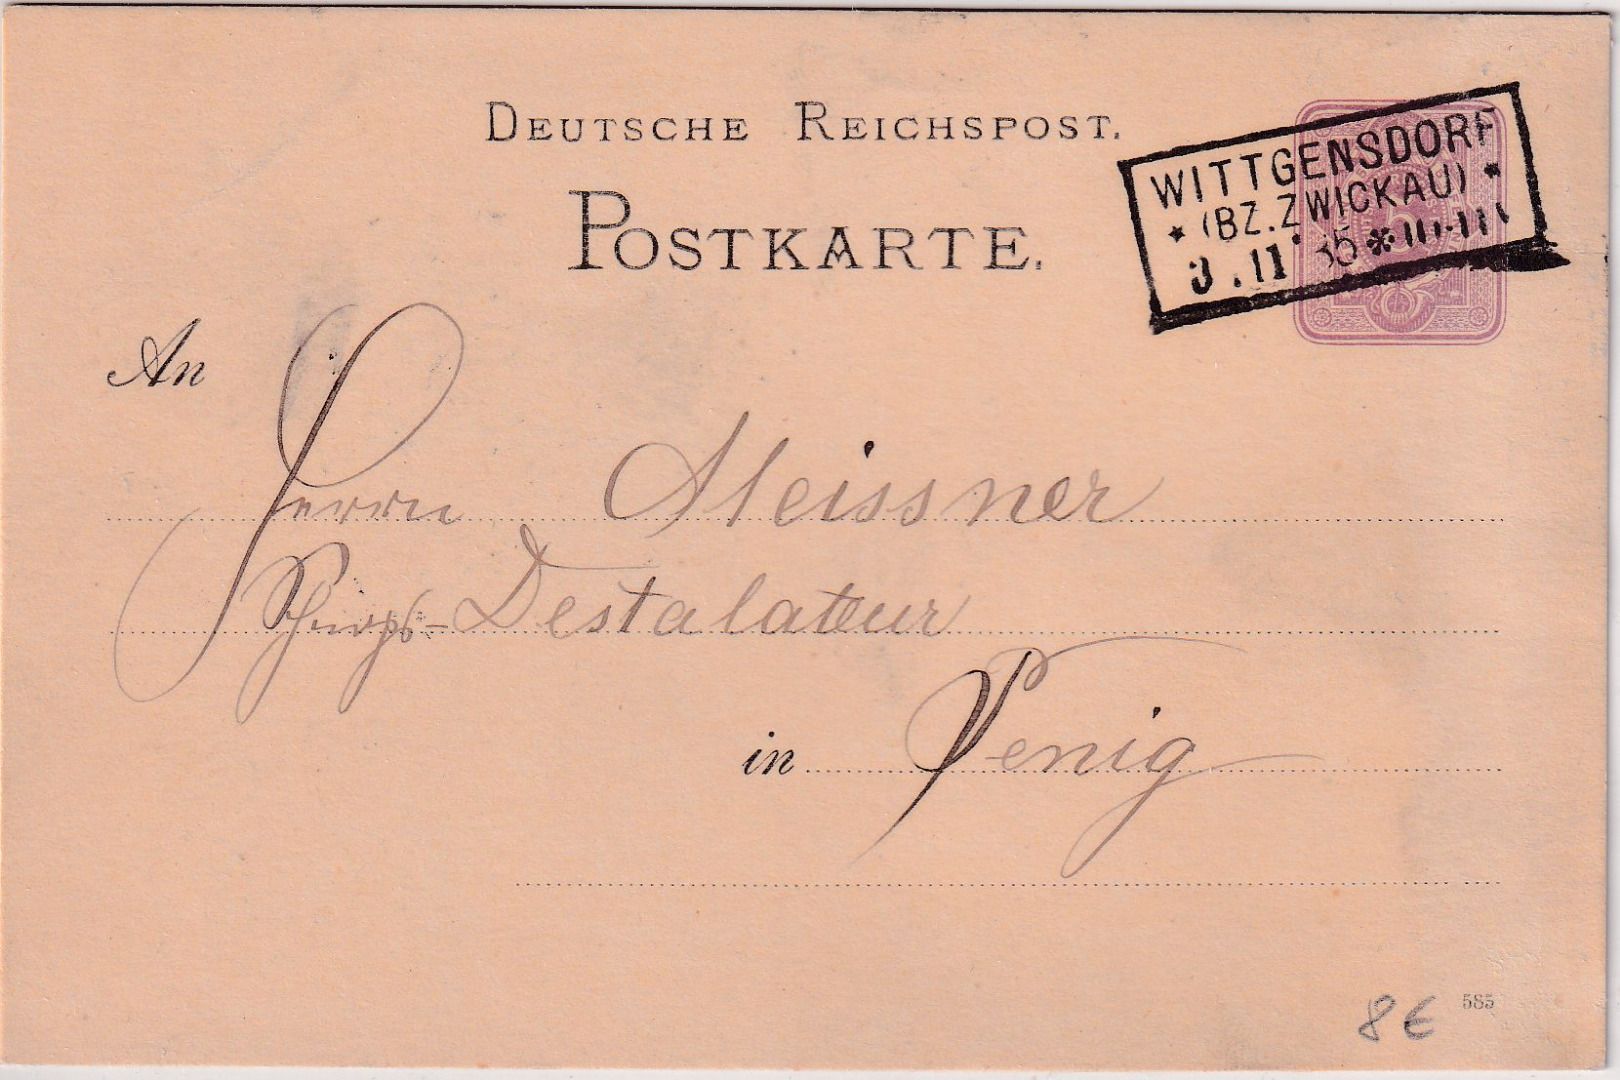 DEUTSCHE REICHSPOST.
POSTKARTE.
WITTGENSDORF
* (BZ.ZWICKAU) *
3.11 85 *
An
Herrn Meissner
Schnaps-Destalateur
in Penig
585
8€